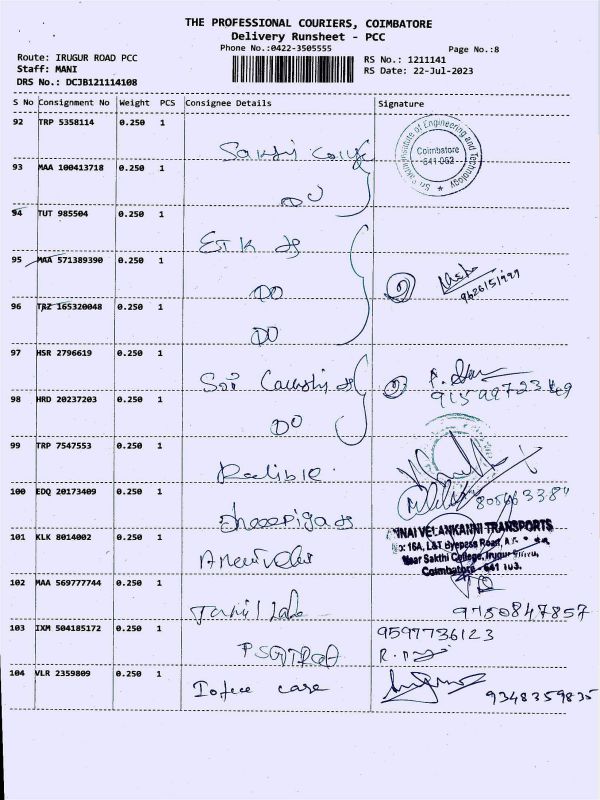 THE PROFESSIONAL COURIERS, COIMBATORE
Delivery Runsheet - PCC
Phone No.:0422-3505555
Page No.:8
Route: IRUGUR ROAD PCC
RS No.: 1211141
Staff: MANI
RS Date: 22-Jul-2023
DRS No.: DCJB121114108
S No Consignment No Weight PCS Consignee Details Signature
92 TRP 5358114 0.250 1
Institute of Engineering and Technology
Coimbatore
641 062
93 MAA 100413718 0.250 1
94 TUT 985504 0.250 1
95 MAA 571389390 0.250 1
DO
9626151999
96 TRZ 165320048 0.250 1
DO
97 HSR 2796619 0.250 1
Sri
98 HRD 20237203 0.250 1
DO
99 TRP 7547553 0.250 1
100 EDQ 20173409 0.250 1
VELANKANNI TRANSPORTS
No: 16A, L&T Byepass Road,
Near Sakthi College, Irugur
Coimbatore - 641 103.
101 KLK 8014002 0.250 1
102 MAA 569777744 0.250 1
Tamil
9750847857
103 IXM 504185172 0.250 1
9597736123
104 VLR 2359809 0.250 1
care
9348359835